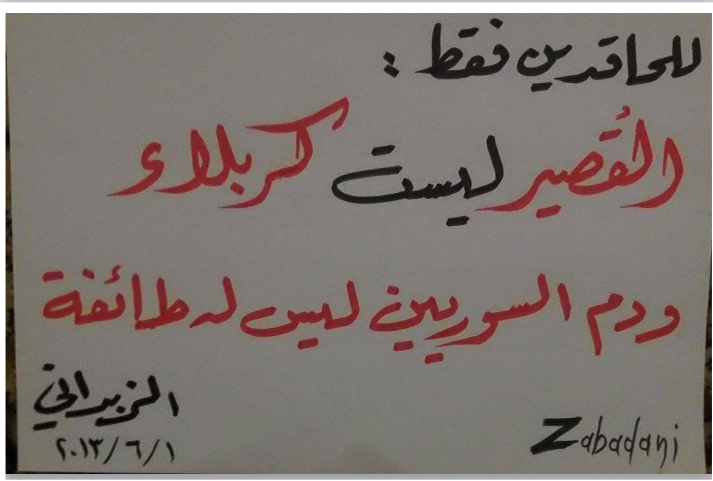 للحاقدين فقط :
القُصير ليست كربلاء
ودم السوريين ليس له طائفة
الزبداني
٢٠١٣/٦/١
Zabadani